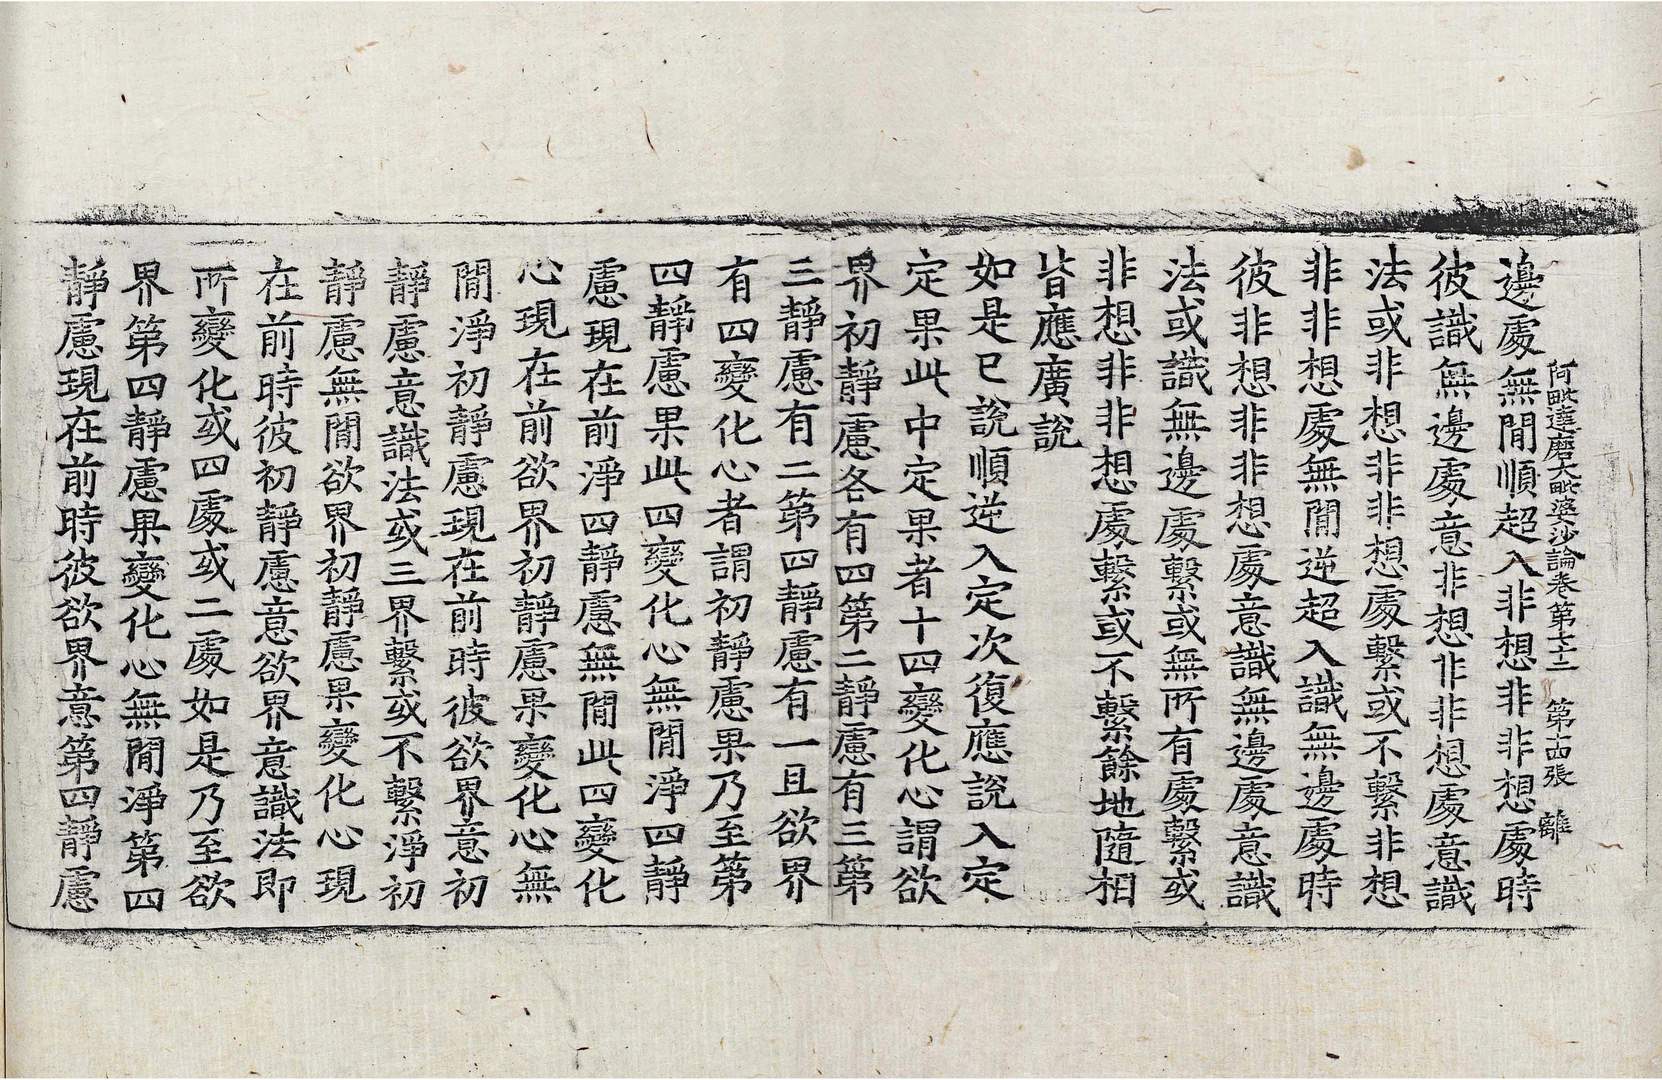 阿毗達磨大毗婆沙論卷第七十二　第十四張　離
邊處無間順超入非想非非想處時
彼識無邊處意非想非非想處意識
法或非想非非想處繫或不繫非想
非非想處無間逆超入識無邊處時
彼非想非非想處意識無邊處意識
法或識無邊處繫或無所有處繫或
非想非非想處繫或不繫餘地隨相
皆應廣說
如是已說順逆入定次復應說入定
定果此中定果者十四變化心謂欲
界初靜慮各有四第二靜慮有三第
三靜慮有二第四靜慮有一且欲界
有四變化心者謂初靜慮果乃至第
四靜慮果此四變化心無間淨四靜
慮現在前淨四靜慮無間此四變化
心現在前欲界初靜慮果變化心無
間淨初靜慮現在前時彼欲界意初
靜慮意識法或三界繫或不繫淨初
靜慮無間欲界初靜慮果變化心現
在前時彼初靜慮意欲界意識法即
所變化或四處或二處如是乃至欲
界第四靜慮果變化心無間淨第四
靜慮現在前時彼欲界意第四靜慮